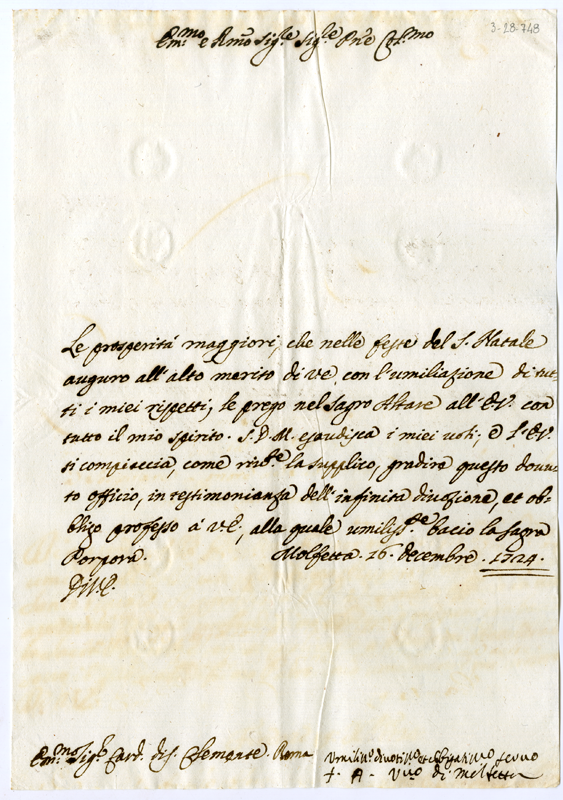 3-28-748
Em:mo e Rmo Sig:re Sig:re Prne Col:mo
Le prosperità maggiori, che nelle feste del S. Natale
auguro all'alto merito di VE. con l'umiliazione di tut-
ti i miei rispetti, le prego nel Sagro Altare all'EV. con
tutto il mio spirito. S.D.M. esaudisca i miei voti; e l'EV.
si compiaccia, come riv:te la supplico, gradire questo dovu-
to officio, in testimonianza dell'infinita divozione, et ob-
bligo professo à VE., alla quale umiliss:te bacio la Sagra
Porpora. Molfetta. 16. decembre. 1724.
Di V.E.
Em:mo Sig:re Card. di S. Clemente. Roma
Umiliss:o divotiss:o et obligatiss:o servo
F. A. Vvo di Molfetta